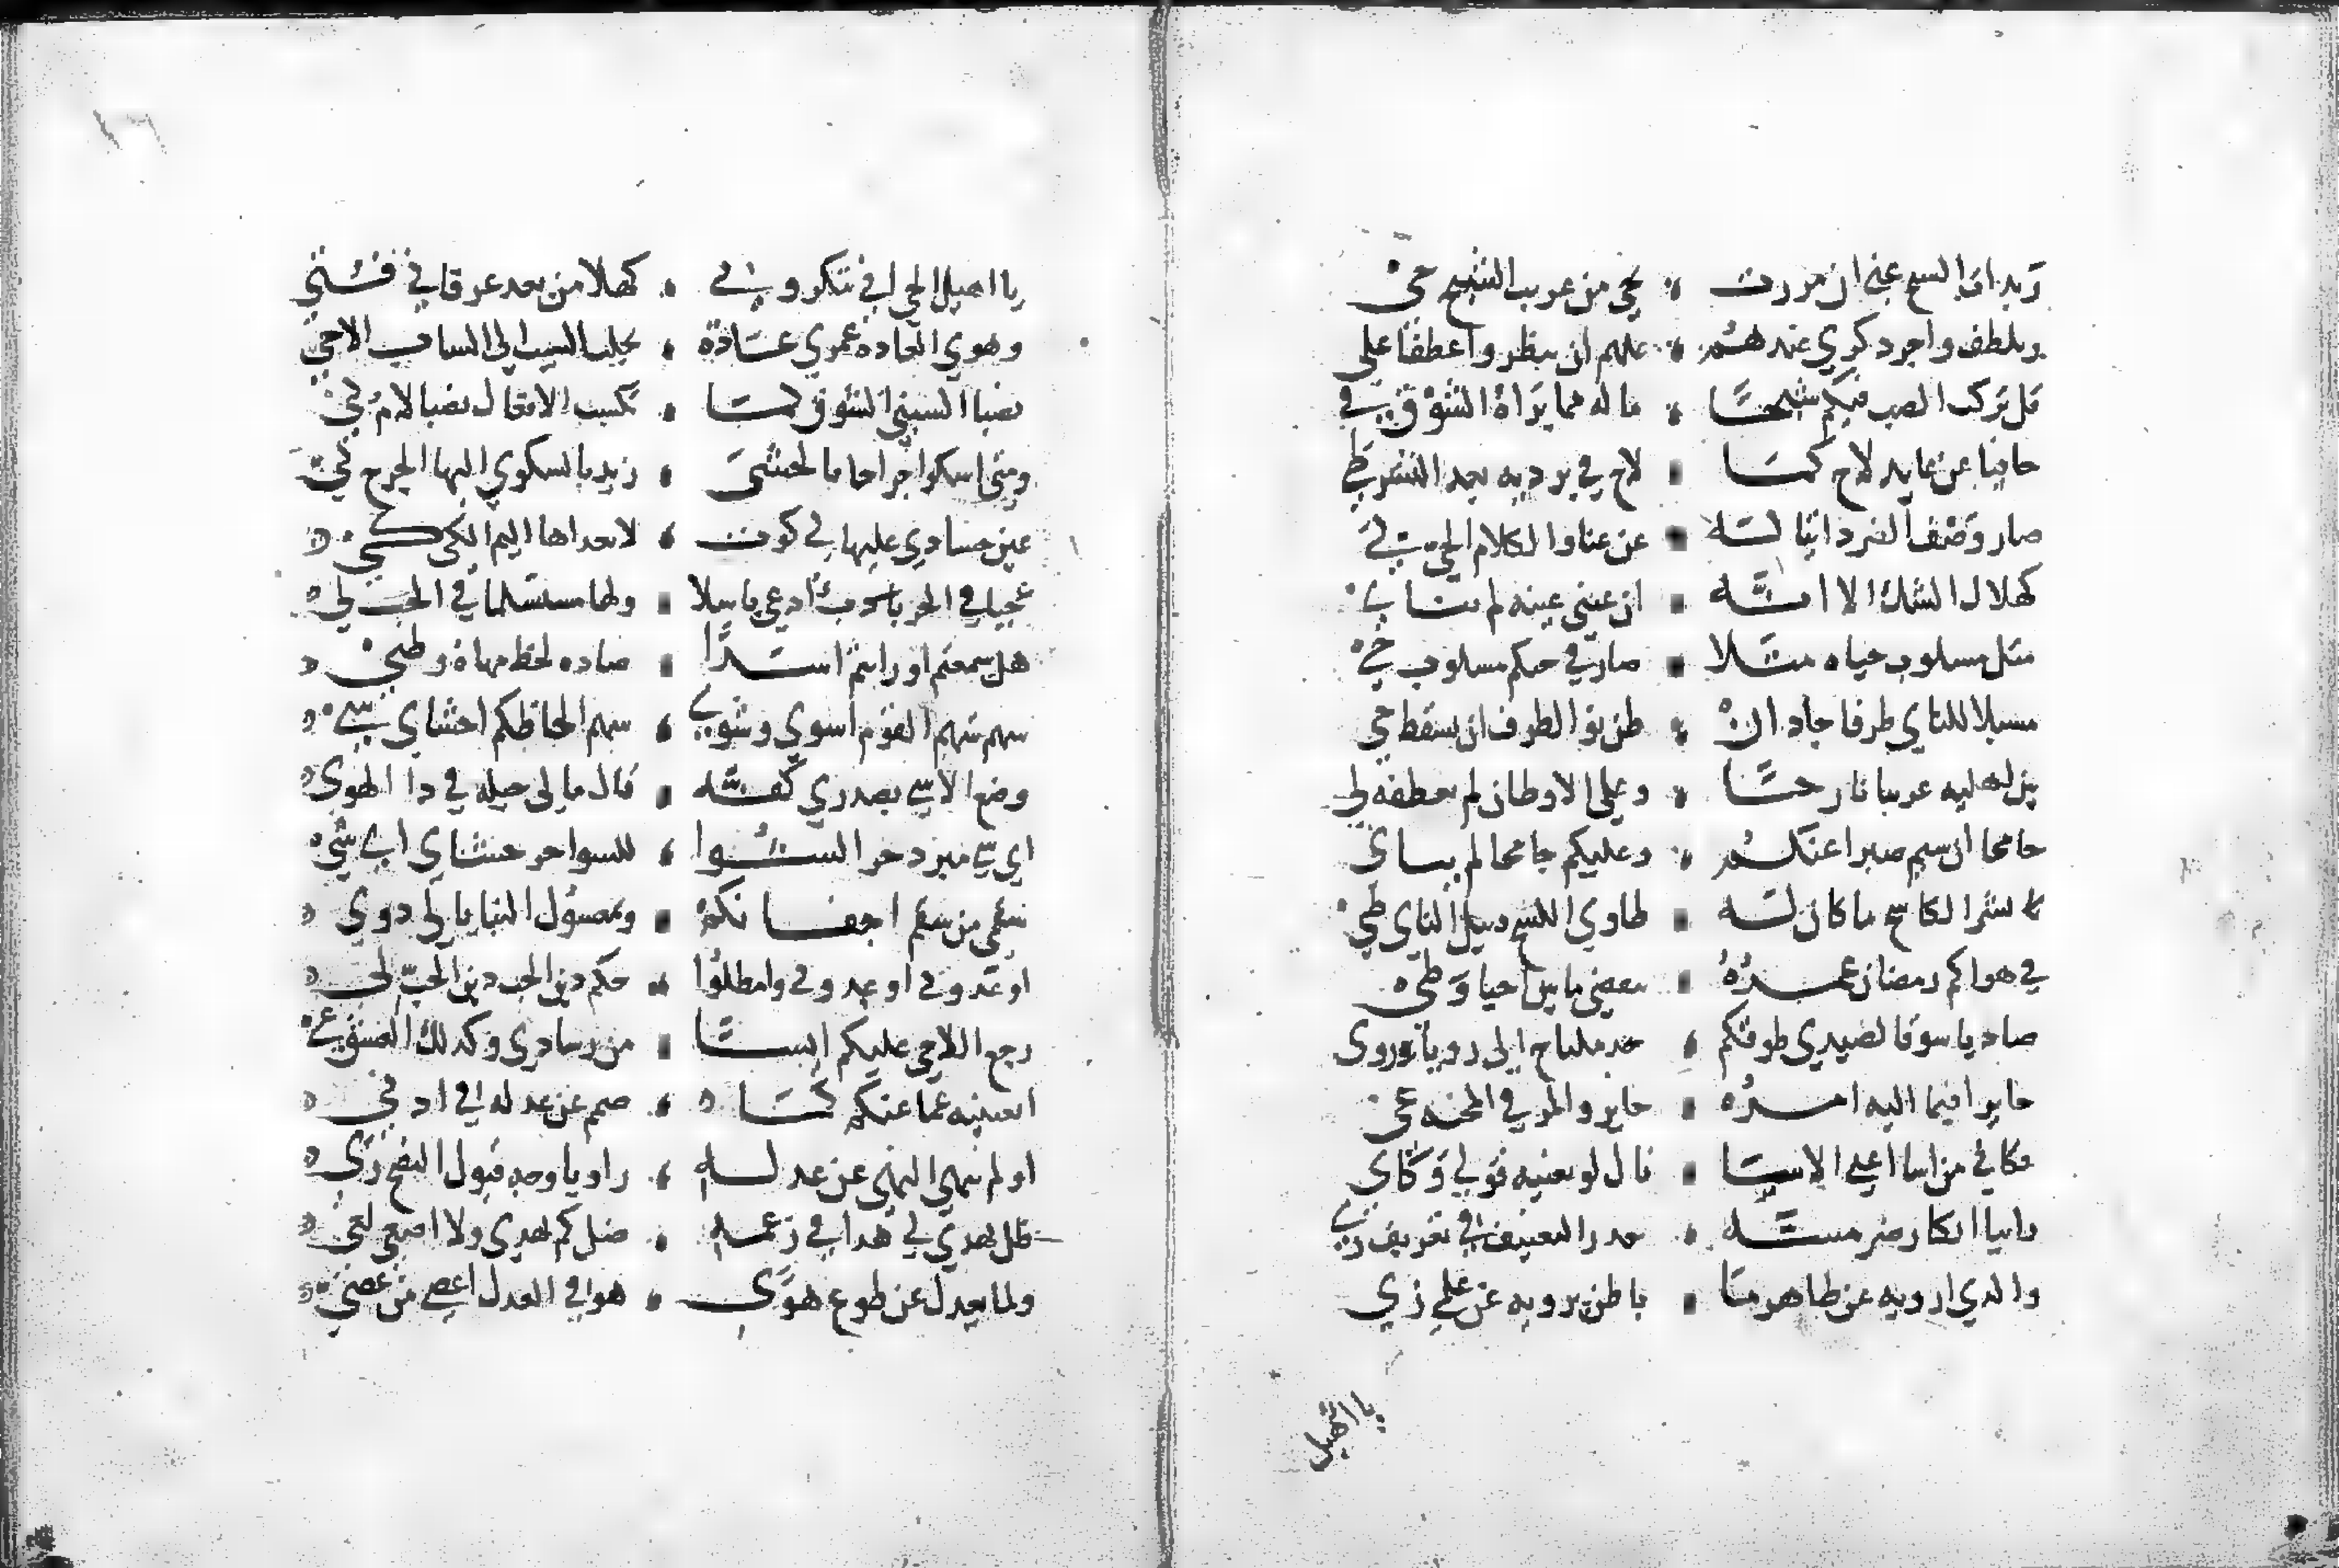 وبدات الشيح عني ان مررت بحي من عريب الشيح حي
وتلطف واجر ذكري عندهم علهم ان ينظروا عطفا علي
قل تركت الصب فيكم شبحا ما له مما براه الشوق في
خافيا عن عايد لاح كما لاح في برديه بعد النشر طي
صار وصف الضر داتيا له عن عناوا لكلام الحي لي
كهلال الشك الا انه ان عيني عينه لم تتاي
مثل مسلوب حياه مثلا صار في حبكم مسلوب حي
مسبلا للناي طرفا جاد ان ظن نوا لطرف ان يسقط خي
بين اهليه غريبا نازحا وعلى الاوطان لم يعطفه لي
جامحا ان سيم صبرا عنكم وعليكم جامحا لم يتاي
نشر الكاشح ما كان له طاوي الكشح قبيل الناي طي
في هواكم رمضان عمره ينقضي ما بين احيا وطي
صاديا شوقا لصيدي طوفكم جد ملتاح الى رويا وروى
حايرا فيما اليه امره حاير والمر في المحنه عي
فكاي من اسا اعيى الاسا نال لو يعنيه قولي وكاي
رايا انكار ضر مسه حدر التعنيف في تعريف ري
والدي ارويه عن ظاهر ما باطن يرويه عن علمي زي
يا اهيل
يا اهيل الحي اني تنكروني كهلا من بعد عرفاني فتي
وهوي الغاده عمري عادة يجلب الشيب الى الشاب الاحي
نصبا اكسبني الشوق كما تكسب الافعال نصبا لام كي
ومتى اشكوا جراحا بالحشى زيد بالشكوي اليها الجرح كي
عين حسادي عليها لي كوت لا تعداها اليم الكي كي
عجبا في الحرب ادعي باسلا ولها مستسلما في الحب لي
هل سمعتم او رايتم اسدا صاده لحظ مهاة وظبي
سهم شهم القوم اشوي وشوي سهم الحاظكم احشاي شي
وضع الاسي بصدري كفه قال ما لي حيله في دا الهوي
اي شي مبرد حرا شوا للشوا حر حشاي اي شي
سقمي من سقم اجفانكم وبمعسول الثنايا لي دوي
اوعدوني او عدوني وامطلوا حكم دين الحب دين الحب لي
رجع اللاحي عليكم ايسا من رشادي وكدلك العشق غي
ابعينيه عما عنكم كما صمم عن عدله في ادني
اولم ينهي النهي عن عدله راويا وجه قبول النصح زي
ظل يهدي لي هدا في زعمه ضل كم يهدي ولا اصغي لغي
ولما يعدل عن طوع هوي هواي العدل اعصي من عصي